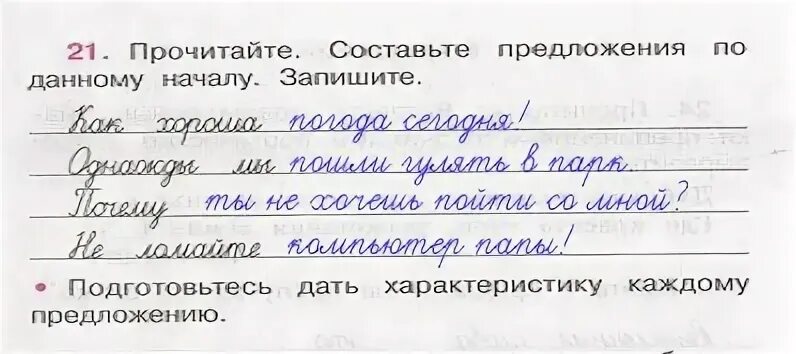 21. Прочитайте. Составьте предложения по
данному началу. Запишите.
Как хороша погода сегодня!
Однажды мы пошли гулять в парк.
Почему ты не хочешь пойти со мной?
Не ломайте компьютер папы!
• Подготовьтесь дать характеристику каждому
предложению.